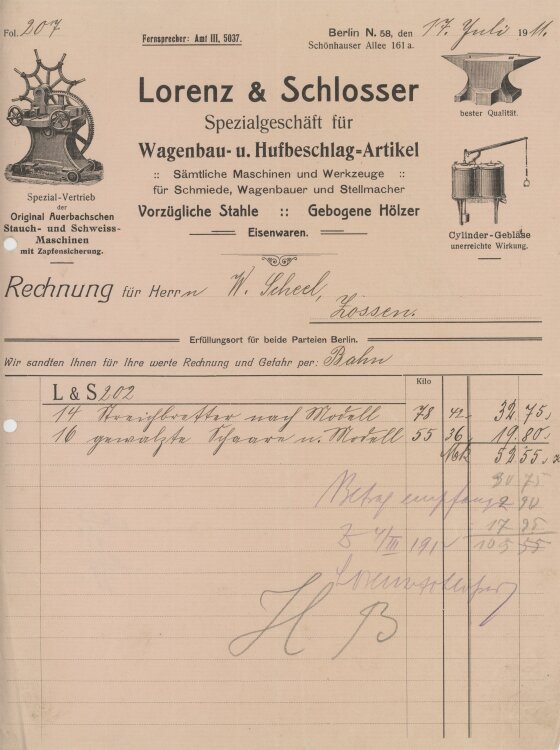 Fol. 207
Fernsprecher: Amt III, 5037.
Berlin N. 58, den 17. Juli 1911.
Schönhauser Allee 161a.
Lorenz & Schlosser
Spezialgeschäft für
Wagenbau- u. Hufbeschlag-Artikel
:: Sämtliche Maschinen und Werkzeuge ::
für Schmiede, Wagenbauer und Stellmacher
Vorzügliche Stahle :: Gebogene Hölzer
Eisenwaren.
Spezial-Vertrieb
der
Original Auerbachschen
Stauch- und Schweiss-
Maschinen
mit Zapfensicherung.
bester Qualität.
Cylinder-Gebläse
unerreichte Wirkung.
Rechnung für Herrn W. Scheel,
Zossen.
Erfüllungsort für beide Parteien Berlin.
Wir sandten Ihnen für Ihre werte Rechnung und Gefahr per: Bahn
Kilo
L & S 202
14 Streichbretter nach Modell 78 42.- 32.75.
16 gewalzte Schaare n. Modell 55 36. 19.80.
Mk 52.55.
30 75
Betrag empfang 2 90
17 95
105 55
H B